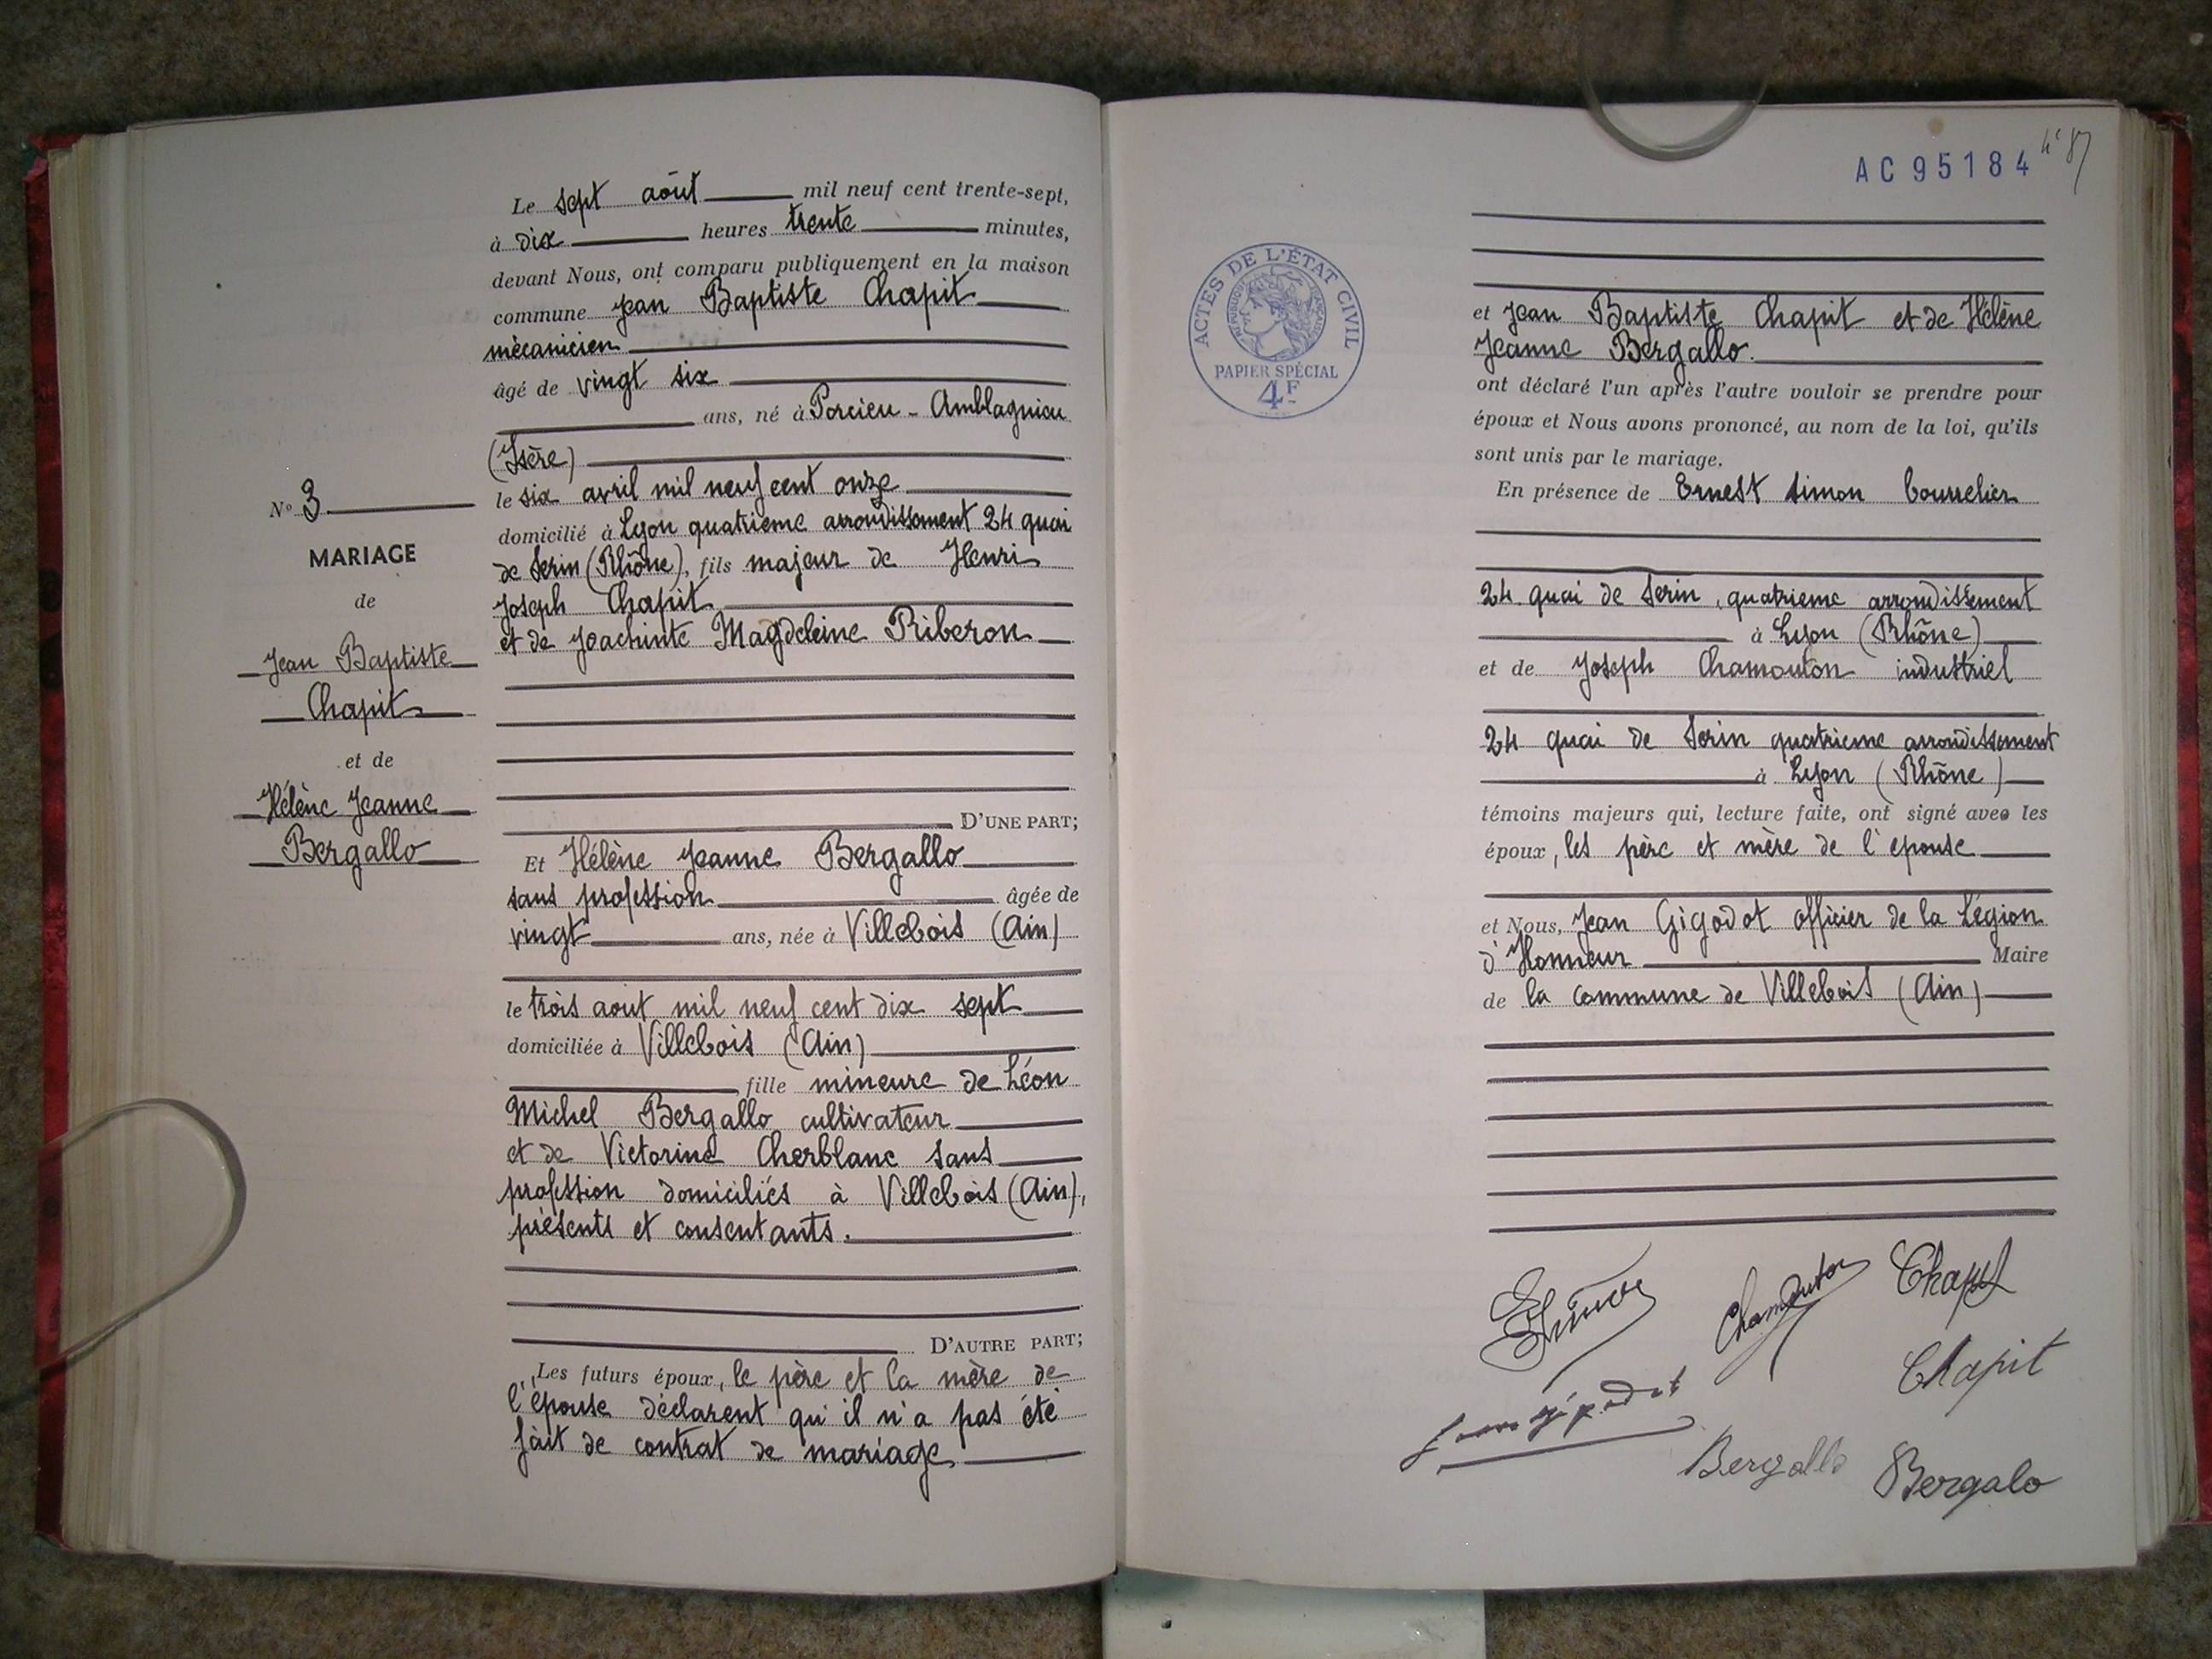 Le sept août mil neuf cent trente-sept,
à dix heures trente minutes,
devant Nous, ont comparu publiquement en la maison
commune Jean Baptiste Chapit
mécanicien
âgé de vingt six
ans, né à Porcieu - Amblagnieu
(Isère)
le six avril mil neuf cent onze
domicilié à Lyon quatrieme arrondissement 24 quai
de Serin (Rhône), fils majeur de Henri
Joseph Chapit
et de Joachinte Magdeleine Riberon
D'UNE PART;
Et Hélène Jeanne Bergallo
sans profession âgée de
vingt ans, née à Villebois (Ain)
le trois aout mil neuf cent dix sept
domiciliée à Villebois (Ain)
fille mineure de Léon
Michel Bergallo cultivateur
et de Victorine Cherblanc sans
profession domiciliés à Villebois (Ain),
présents et consentants.
D'AUTRE PART;
Les futurs époux, le père et la mère de
l'épouse déclarent qu'il n'a pas été
fait de contrat de mariage
N° 3
MARIAGE
de
Jean Baptiste
Chapit
et de
Hélène Jeanne
Bergallo
AC 95184
ACTES DE L'ÉTAT CIVIL
RÉPUBLIQUE FRANÇAISE
PAPIER SPÉCIAL
4F
et Jean Baptiste Chapit et de Hélène
Jeanne Bergallo.
ont déclaré l'un après l'autre vouloir se prendre pour
époux et Nous avons prononcé, au nom de la loi, qu'ils
sont unis par le mariage.
En présence de Ernest Simon Courrelier
24 quai de Serin, quatrieme arrondissement
à Lyon (Rhône)
et de Joseph Chamouton industriel
24 quai de Serin quatrieme arrondissement
à Lyon (Rhône)
témoins majeurs qui, lecture faite, ont signé avec les
époux, les père et mère de l'epouse
et Nous, Jean Gigodot officier de la Légion
d'Honneur Maire
de la commune de Villebois (Ain)
Chamouton
Chapit
Chapit
Jean gigodot
Bergallo
Bergalo